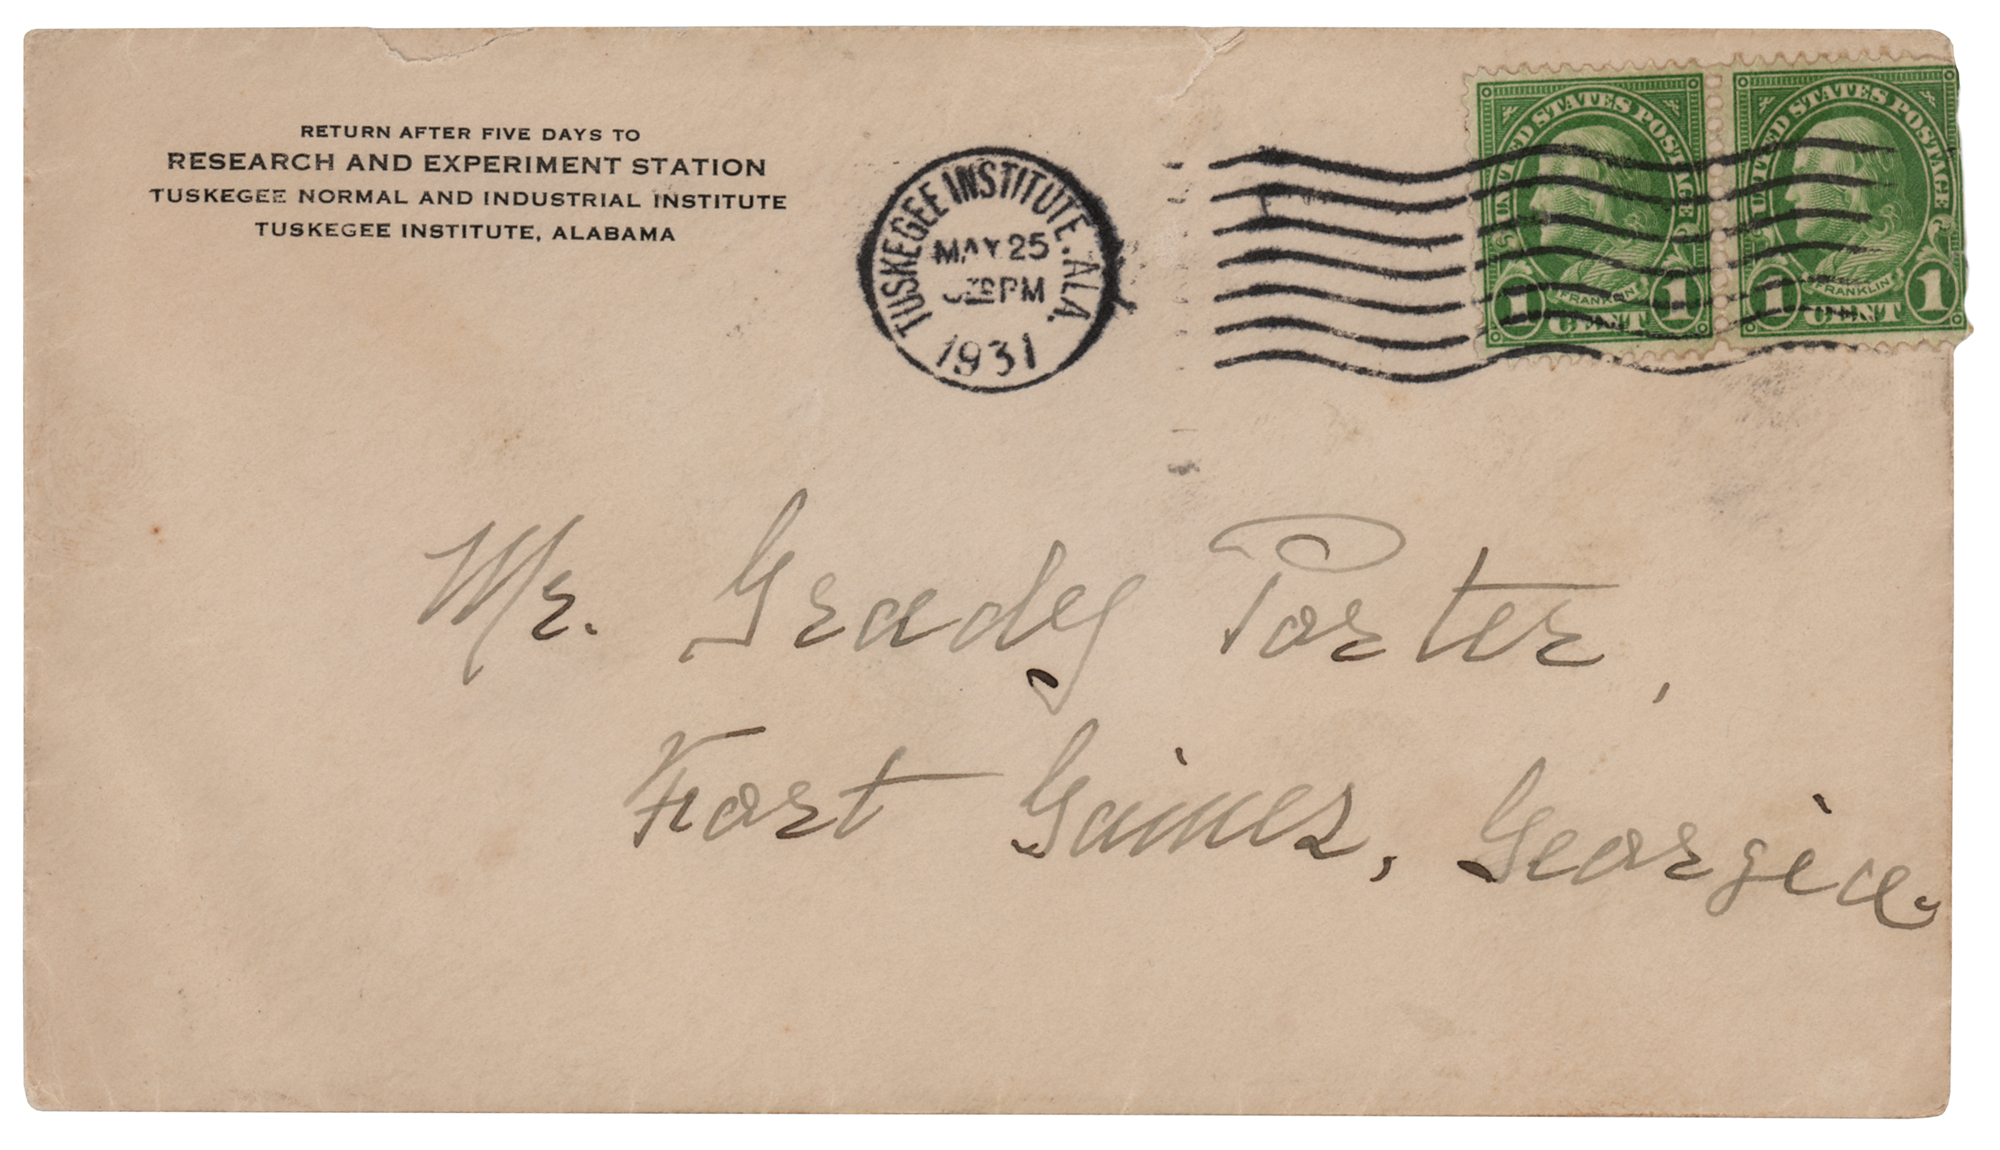 RETURN AFTER FIVE DAYS TO
RESEARCH AND EXPERIMENT STATION
TUSKEGEE NORMAL AND INDUSTRIAL INSTITUTE
TUSKEGEE INSTITUTE, ALABAMA
TUSKEGEE INSTITUTE. ALA.
MAY 25
PM
1931
UNITED STATES POSTAGE
FRANKLIN
1 CENT 1
UNITED STATES POSTAGE
FRANKLIN
1 CENT 1
Mr. Grady Porter,
Fort Gaines, Georgia.